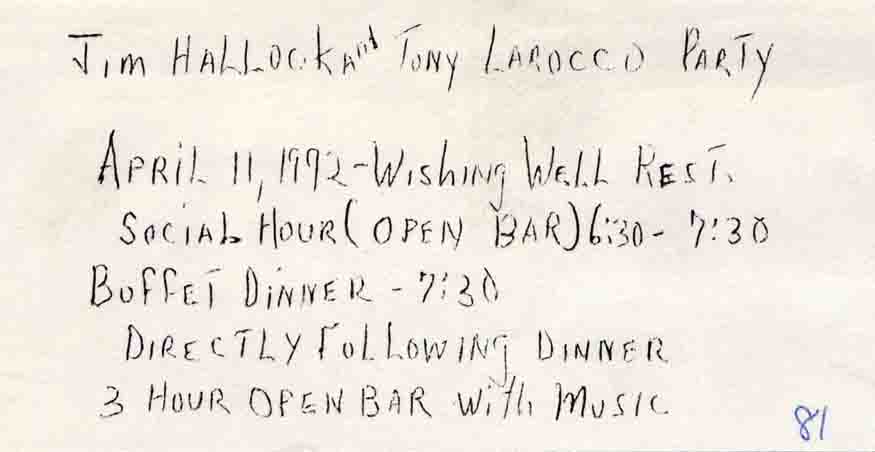 Jim HALLOCK And TONY LAROCCO PARTY
APRIL 11, 1992 - Wishing WELL REST.
SOCIAL HOUR (OPEN BAR) 6:30 - 7:30
BUFFET DINNER - 7:30
DIRECTLY FOLLOWING DINNER
3 HOUR OPEN BAR With MUSIC
81